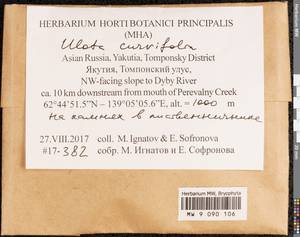 HERBARIUM HORTI BOTANICI PRINCIPALIS
(MHA)
Ulota curvifolia
Asian Russia, Yakutia, Tomponsky District
Якутия, Томпонский улус,
NW-facing slope to Dyby River
ca. 10 km downstream from mouth of Perevalny Creek
62°44'51.5"N – 139°05'05.6"E, alt. = 1000 m
На камнях в лиственничнике
27.VIII.2017 coll. M. Ignatov & E. Sofronova
#17-382 собр. М. Игнатов и Е. Софронова
Herbarium MW, Bryophyta
MW 9 090 106